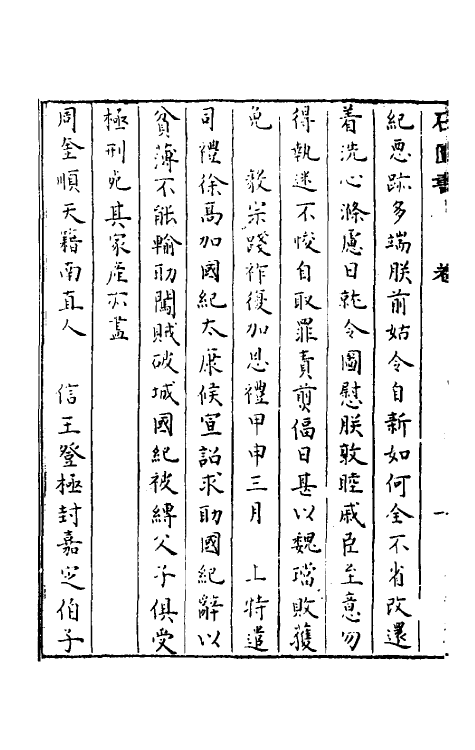 石匱書
卷
一
紀惡跡多端朕前姑令自新如何全不省改還
着洗心滌慮日就令圖慰朕敦睦戚臣至意勿
得執迷不悛自取罪責剪偪日甚以魏璫敗獲
免　毅宗踐祚復加恩禮甲申三月　上特遣
司禮徐高加國紀太康候宣詔求助國紀辭以
貧薄不能輸助闖賊破城國紀被縛父子俱受
極刑死其家産亦盡
周奎順天籍南直人　信王登極封嘉定伯子